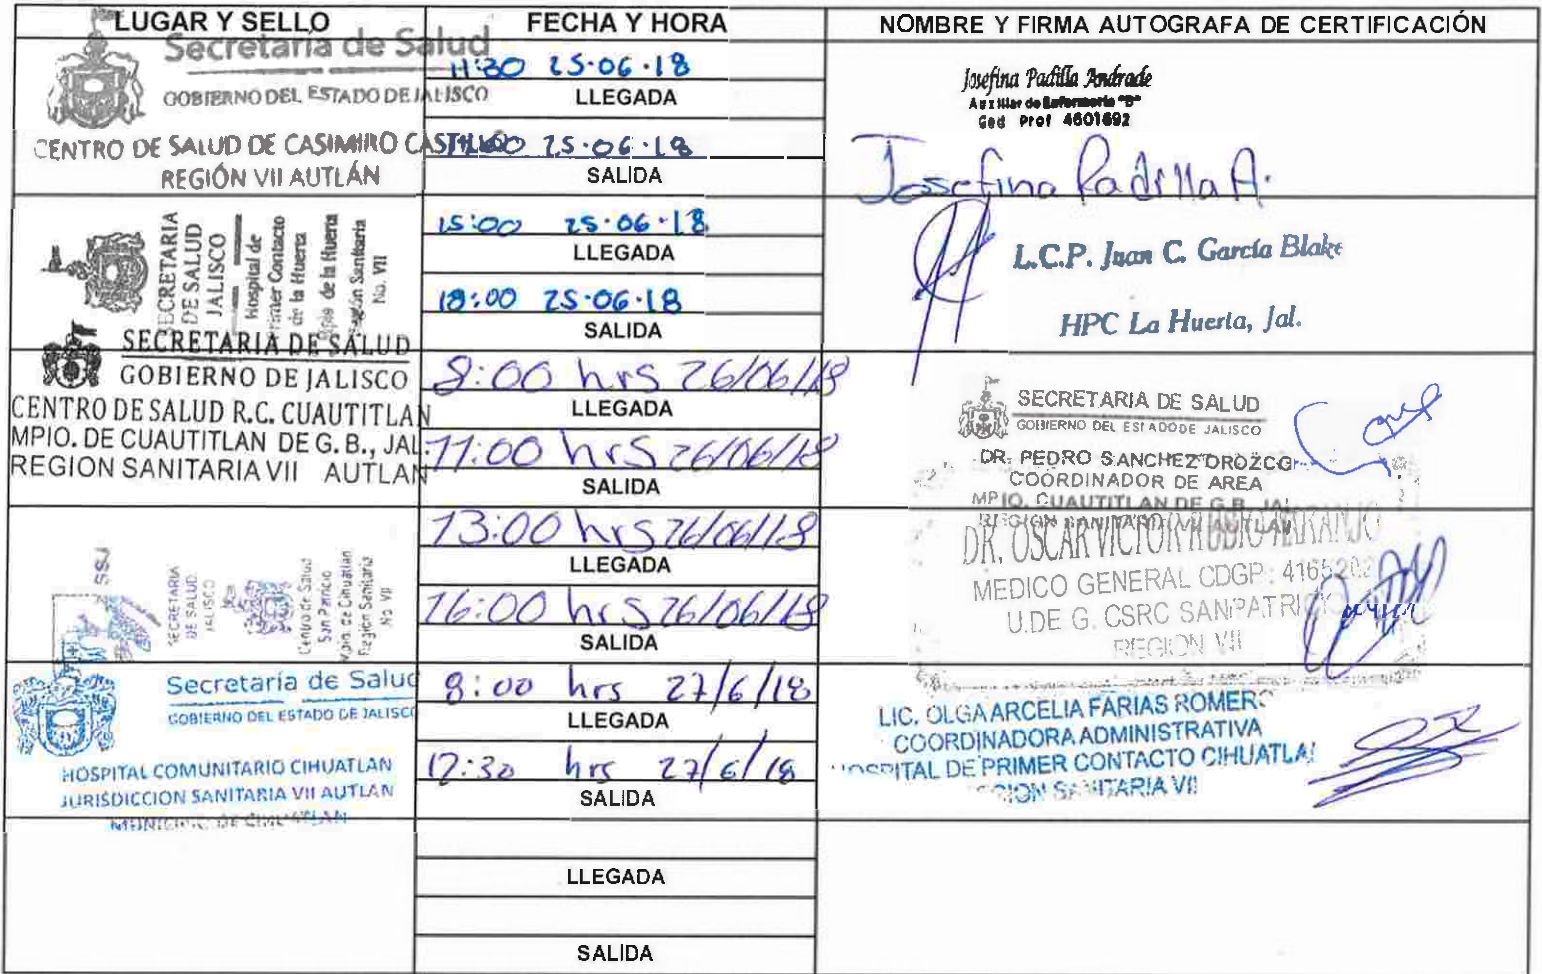 LUGAR Y SELLO
FECHA Y HORA
NOMBRE Y FIRMA AUTOGRAFA DE CERTIFICACIÓN
Secretaría de Salud
GOBIERNO DEL ESTADO DE JALISCO
CENTRO DE SALUD DE CASIMIRO CASTILLO
REGIÓN VII AUTLÁN
11:30 25·06·18
LLEGADA
25·06·18
SALIDA
Josefina Padilla Andrade
Auxiliar de Enfermería "B"
Ced Prof 4601692
Josefina Padilla A.
SECRETARIA
DE SALUD
JALISCO
Hospital de
Primer Contacto
de la Huerta
de la Huerta
Región Sanitaria
No. VII
15:00 25·06·18
LLEGADA
18:00 25·06·18
SALIDA
L.C.P. Juan C. García Blake
HPC La Huerta, Jal.
SECRETARIA DE SALUD
GOBIERNO DE JALISCO
CENTRO DE SALUD R.C. CUAUTITLAN
MPIO. DE CUAUTITLAN DE G. B., JAL.
REGION SANITARIA VII AUTLAN
8:00 hrs 26/06/18
LLEGADA
11:00 hrs 26/06/18
SALIDA
SECRETARIA DE SALUD
GOBIERNO DEL ESTADO DE JALISCO
DR. PEDRO SANCHEZ OROZCO
COORDINADOR DE AREA
MPIO. CUAUTITLAN DE G.B. JAL
REGION SANITARIA VII AUTLAN
SSJ
SECRETARIA
DE SALUD
JALISCO
Centro de Salud
San Patricio
Mpio. de Cihuatlan
Region Sanitaria
No. VII
13:00 hrs 26/06/18
LLEGADA
16:00 hrs 26/06/18
SALIDA
DR. OSCAR VICTOR RUBIO NARANJO
MEDICO GENERAL CDGP: 4165202
U.DE G. CSRC SAN PATRICIO
REGION VII
Secretaría de Salud
GOBIERNO DEL ESTADO DE JALISCO
HOSPITAL COMUNITARIO CIHUATLAN
JURISDICCION SANITARIA VII AUTLAN
MUNICIPIO DE CIHUATLAN
8:00 hrs 27/6/18
LLEGADA
12:30 hrs 27/6/18
SALIDA
LIC. OLGA ARCELIA FARIAS ROMERO
COORDINADORA ADMINISTRATIVA
HOSPITAL DE PRIMER CONTACTO CIHUATLAN
REGION SANITARIA VII
LLEGADA
SALIDA